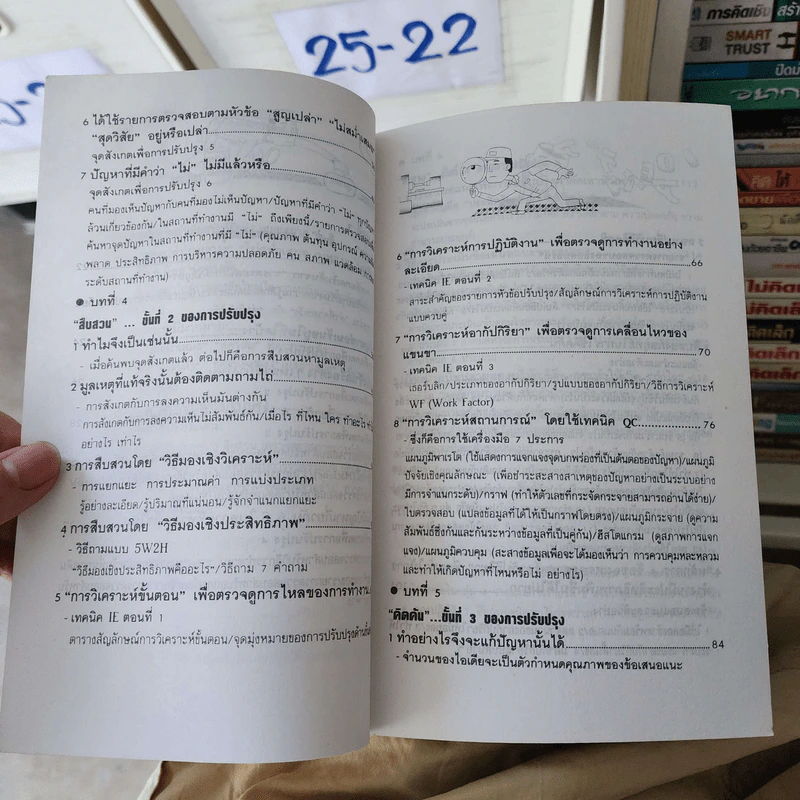 25-22
การคิดเชิง
SMART
TRUST
6 ได้ใช้รายการตรวจสอบตามหัวข้อ “สูญเปล่า” “ไม่สม่ำเสมอ
“สุดวิสัย” อยู่หรือเปล่า
จุดสังเกตเพื่อการปรับปรุง 5
7 ปัญหาที่มีคำว่า “ไม่” ไม่มีแล้วหรือ
จุดสังเกตเพื่อการปรับปรุง 6
คนที่มองเห็นปัญหากับคนที่มองไม่เห็นปัญหา/ปัญหาที่มีคำว่า “ไม่”
ล้วนเกี่ยวข้องกัน/ในสถานที่ทำงานมี “ไม่” ถึงเพียงนี้/รายการตรวจสอบ
ค้นหาจุดปัญหาในสถานที่ทำงานที่มี “ไม่” (คุณภาพ ต้นทุน อุปกรณ์
พลาด ประสิทธิภาพ การบริหารความปลอดภัย คน สภาพ แวดล้อม
ระดับสถานที่ทำงาน)
● บทที่ 4
“สืบสวน” ... ขั้นที่ 2 ของการปรับปรุง
1 ทำไมจึงเป็นเช่นนั้น
- เมื่อค้นพบจุดสังเกตแล้ว ต่อไปก็คือการสืบสวนหามูลเหตุ
2 มูลเหตุที่แท้จริงนั้นต้องติดตามถามไถ่
- การสังเกตกับการลงความเห็นมันต่างกัน
การสังเกตกับการลงความเห็นไม่สัมพันธ์กัน/เมื่อไร ที่ไหน ใคร ทำอะไร
อย่างไร เท่าไร
3 การสืบสวนโดย “วิธีมองเชิงวิเคราะห์”
- การแยกแยะ การประมาณค่า การแบ่งประเภท
รู้อย่างละเอียด/รู้ปริมาณที่แน่นอน/รู้จักจำแนกแยกแยะ
4 การสืบสวนโดย “วิธีมองเชิงประสิทธิภาพ”
- วิธีถามแบบ 5W2H
“วิธีมองเชิงประสิทธิภาพคืออะไร”/วิธีถาม 7 คำถาม
5 “การวิเคราะห์ขั้นตอน” เพื่อตรวจดูการไหลของการทำงาน
- เทคนิค IE ตอนที่ 1
ตารางสัญลักษณ์การวิเคราะห์ขั้นตอน/จุดมุ่งหมายของการปรับปรุงด้านขั้น
6 “การวิเคราะห์การปฏิบัติงาน” เพื่อตรวจดูการทำงานอย่าง
ละเอียด 66
- เทคนิค IE ตอนที่ 2
สาระสำคัญของรายการหัวข้อปรับปรุง/สัญลักษณ์การวิเคราะห์การปฏิบัติงาน
แบบควบคู่
7 “การวิเคราะห์อากัปกิริยา” เพื่อตรวจดูการเคลื่อนไหวของ
แขนขา 70
- เทคนิค IE ตอนที่ 3
เธอร์บลิก/ประเภทของอากัปกิริยา/รูปแบบของอากัปกิริยา/วิธีการวิเคราะห์
WF (Work Factor)
8 “การวิเคราะห์สถานการณ์” โดยใช้เทคนิค QC 76
- ซึ่งก็คือการใช้เครื่องมือ 7 ประการ
แผนภูมิพาเรโต (ใช้แสดงการแจกแจงจุดบกพร่องที่เป็นต้นตอของปัญหา)/แผนภูมิ
ปัจจัยเชิงคุณลักษณะ (เพื่อชำระสะสางสาเหตุของปัญหาอย่างเป็นระบบอย่าง
มีการจำแนกระดับ)/กราฟ (ทำให้ตัวเลขที่กระจัดกระจายสามารถอ่านได้ง่าย)/
ใบตรวจสอบ (แปลงข้อมูลที่ได้ให้เป็นกราฟโดยตรง)/แผนภูมิกระจาย (ดูความ
สัมพันธ์ซึ่งกันและกันระหว่างข้อมูลที่เป็นคู่กัน)/ฮีสโตแกรม (ดูสภาพการแจก
แจง)/แผนภูมิควบคุม (สะสางข้อมูลเพื่อจะได้มองเห็นว่า การควบคุมหละหลวม
และทำให้เกิดปัญหาที่ไหนหรือไม่ อย่างไร)
● บทที่ 5
“คิดค้น”...ขั้นที่ 3 ของการปรับปรุง
1 ทำอย่างไรจึงจะแก้ปัญหานั้นได้ 84
- จำนวนของไอเดียจะเป็นตัวกำหนดคุณภาพของข้อเสนอแนะ